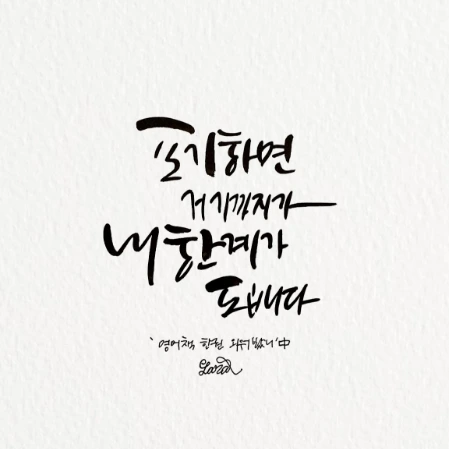 포기하면
거기까지가
내 한계가
됩니다
'영어책 한권 외워봤니'中